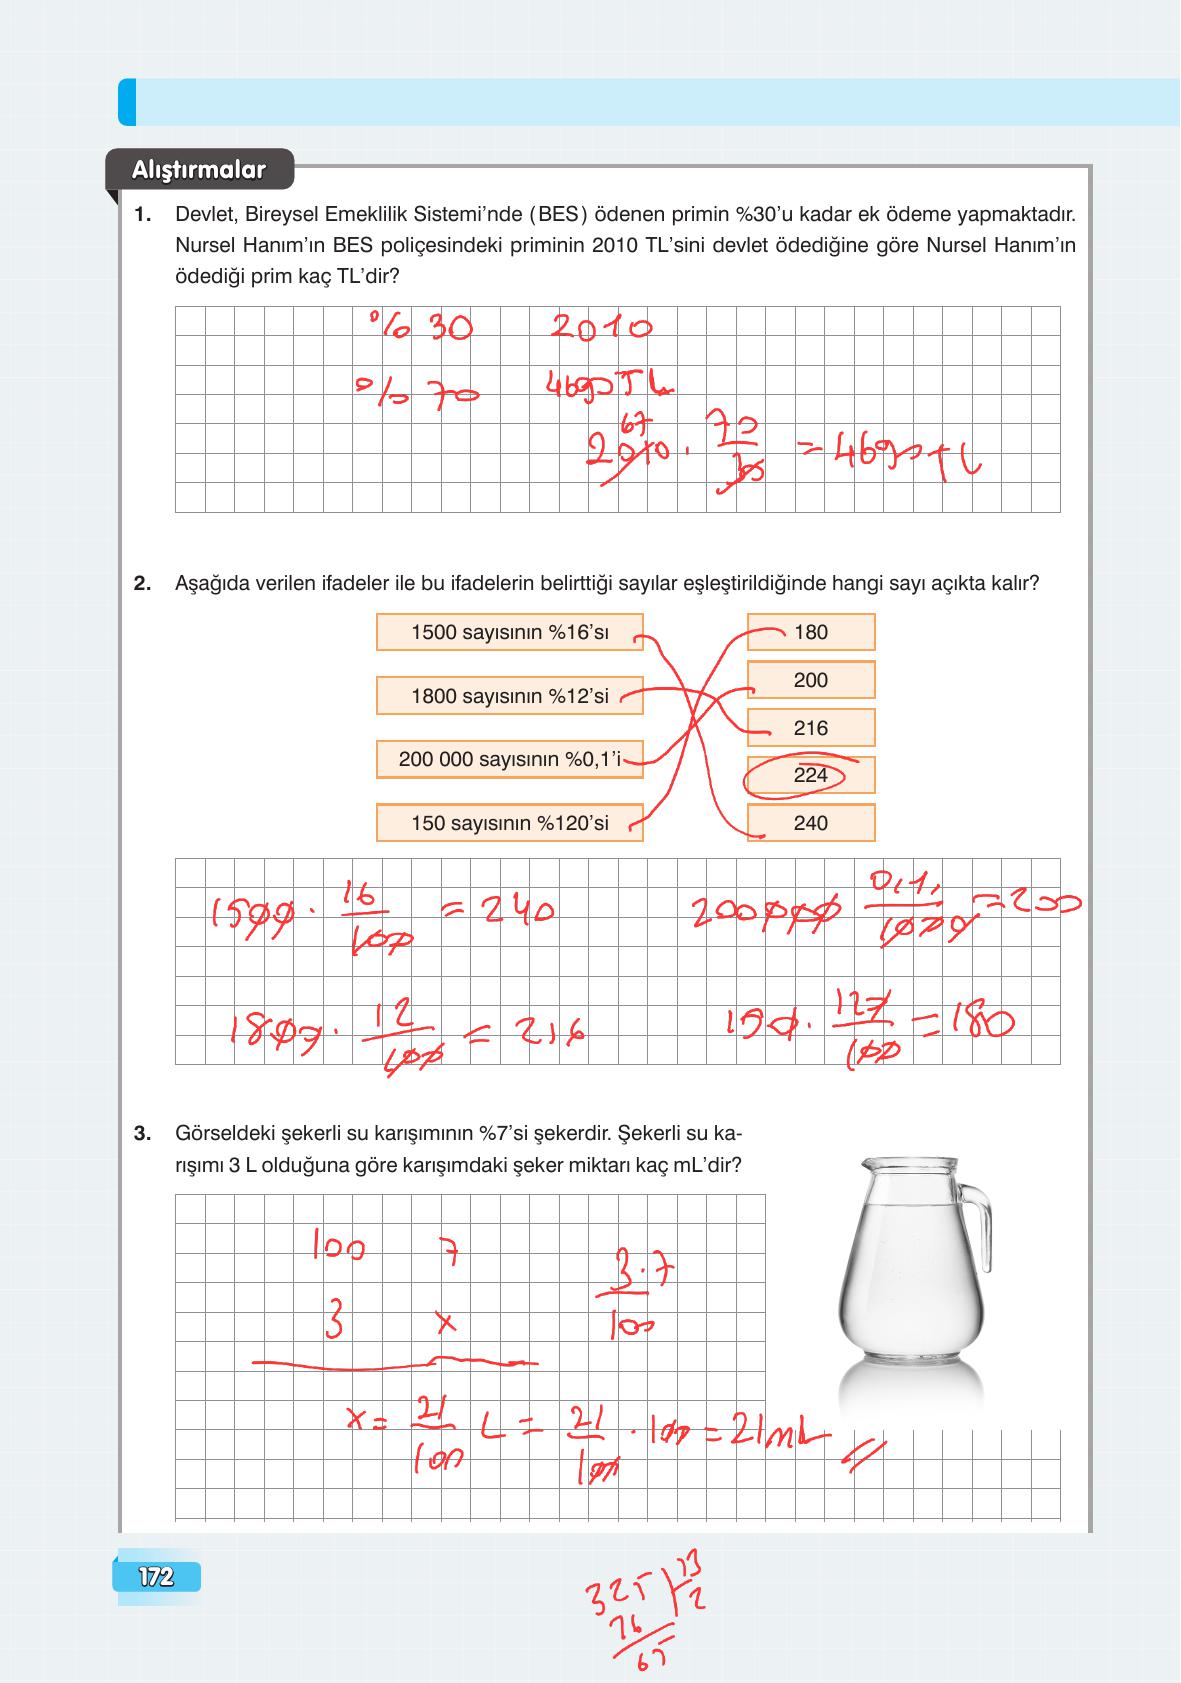 Alıştırmalar
1. Devlet, Bireysel Emeklilik Sistemi'nde (BES) ödenen primin %30'u kadar ek ödeme yapmaktadır.
Nursel Hanım'ın BES poliçesindeki priminin 2010 TL'sini devlet ödediğine göre Nursel Hanım'ın
ödediği prim kaç TL'dir?
% 30 2010
% 70 4690 TL
67
2010 . 70/30 = 4690 TL
2. Aşağıda verilen ifadeler ile bu ifadelerin belirttiği sayılar eşleştirildiğinde hangi sayı açıkta kalır?
1500 sayısının %16'sı
180
200
1800 sayısının %12'si
216
200 000 sayısının %0,1'i
224
150 sayısının %120'si
240
1500 . 16/100 = 240
200000 0,1/100 = 200
1800 . 12/100 = 216
150 . 120/100 = 180
3. Görseldeki şekerli su karışımının %7'si şekerdir. Şekerli su ka-
rışımı 3 L olduğuna göre karışımdaki şeker miktarı kaç mL'dir?
100 7
3 x
3.7/100
x = 21/100 L = 21/100 . 100 = 21mL
172
325 13
2
65